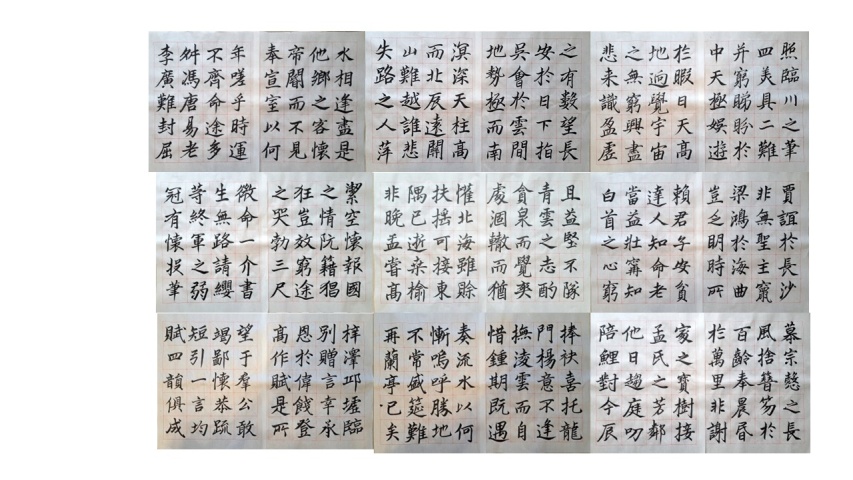 照臨川之筆
四美具二難
并窮睇眄於
中天極娛遊
於暇日天高
地迥覺宇宙
之無窮興盡
悲來識盈虛
之有數望長
安於日下指
吳會於雲間
地勢極而南
溟深天柱高
而北辰遠關
山難越誰悲
失路之人萍
水相逢盡是
他鄉之客懷
帝閽而不見
奉宣室以何
年嗟乎時運
不齊命途多
舛馮唐易老
李廣難封屈
賈誼於長沙
非無聖主竄
梁鴻於海曲
豈乏明時所
賴君子安貧
達人知命老
當益壯寧知
白首之心窮
且益堅不隊
青雲之志酌
貪泉而覺爽
處涸轍而猶
懽北海雖賒
扶搖可接東
隅已逝桑榆
非晚孟嘗高
潔空懷報國
之情阮籍猖
狂豈效窮途
之哭勃三尺
微命一介書
生無路請纓
等終軍之弱
冠有懷投筆
慕宗愨之長
風捨簪笏於
百齡奉晨昏
於萬里非謝
家之寶樹接
孟氏之芳鄰
他日趨庭叨
陪鯉對今辰
捧袂喜托龍
門楊意不逢
撫凌雲而自
惜鍾期既遇
奏流水以何
慚嗚呼勝地
不常盛筵難
再蘭亭已矣
梓澤邱墟臨
別贈言幸承
恩於偉餞登
高作賦是所
望于羣公敢
竭鄙懷恭疏
短引一言均
賦四韻俱成